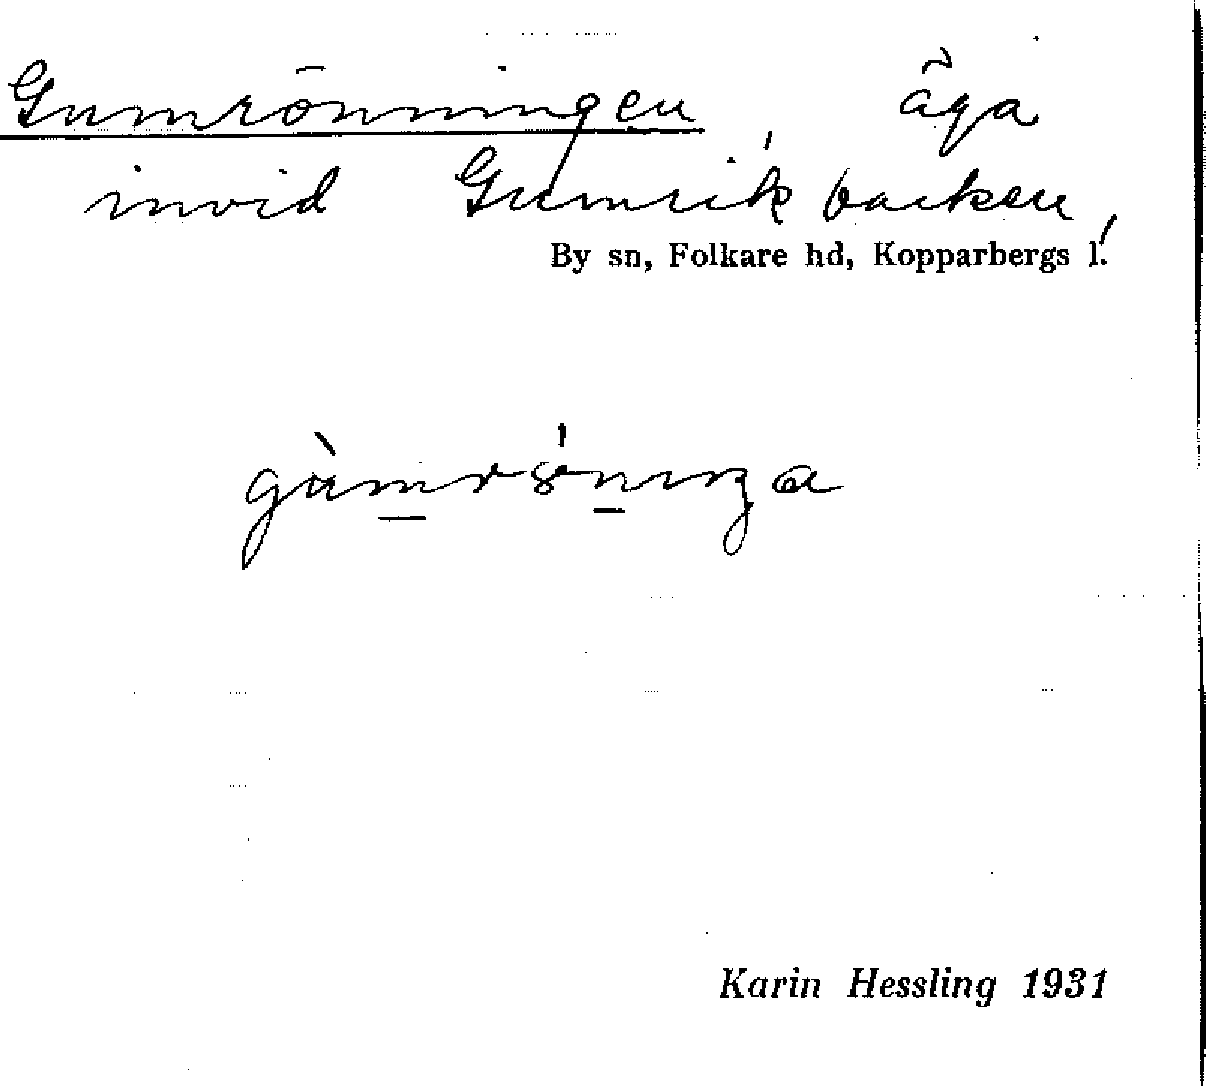 Gumrönningen äga
invid Gumrik backen,
By sn, Folkare hd, Kopparbergs l.
Karin Hessling 1931